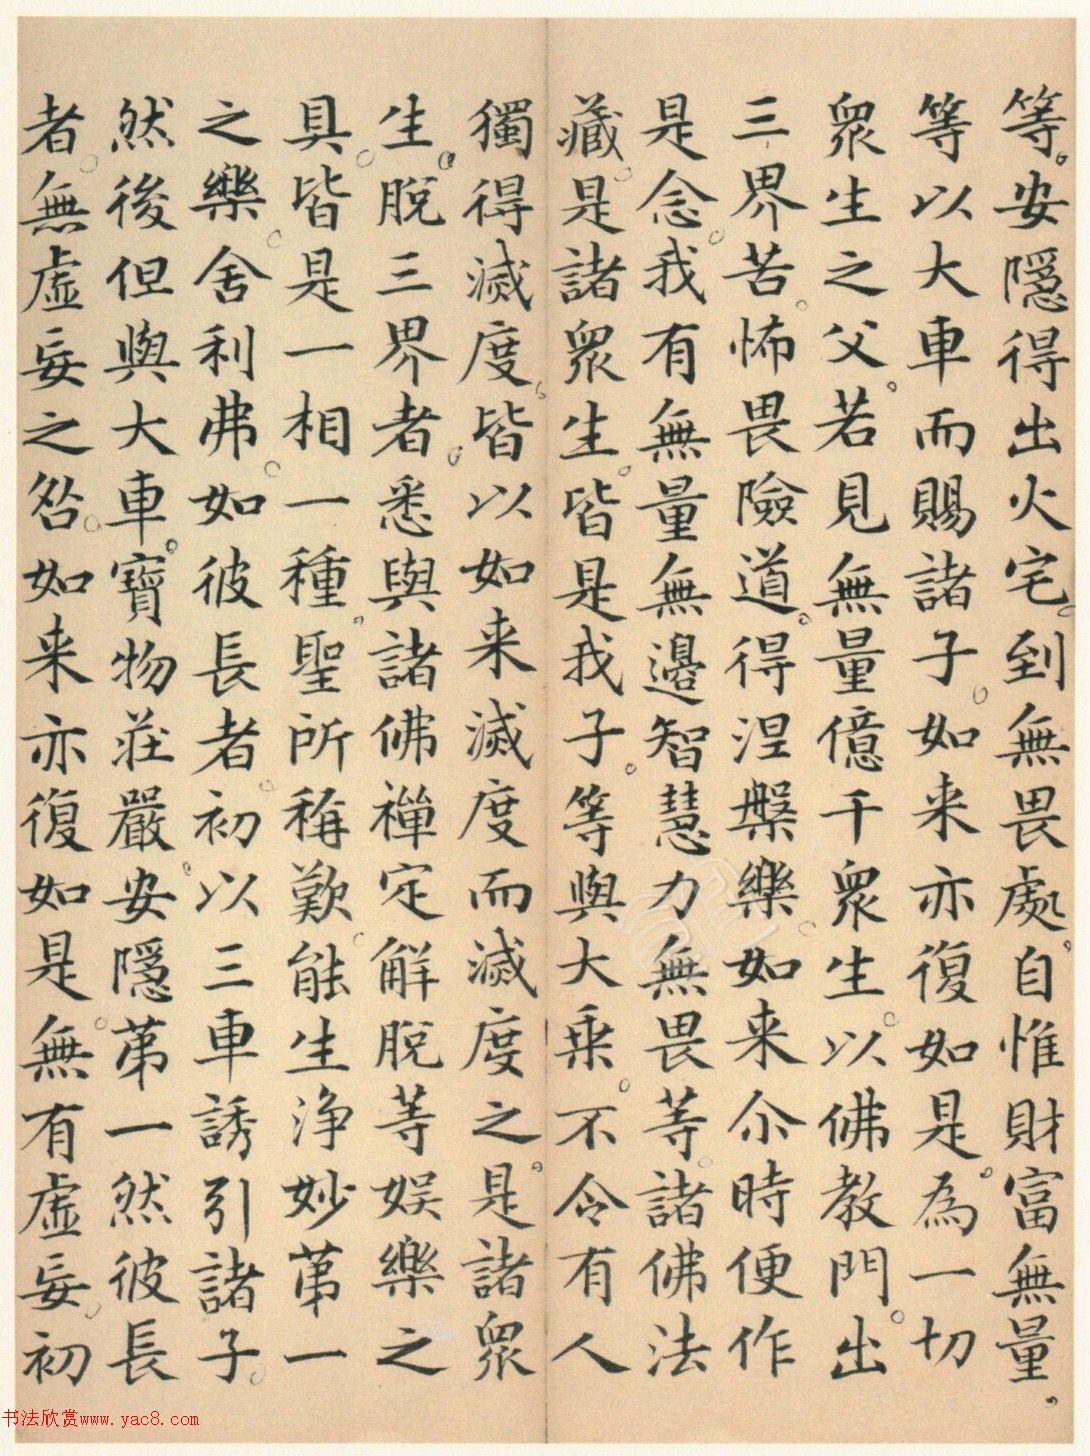 等。安隱得出火宅。到無畏處。自惟財富無量。
等以大車而賜諸子。如来亦復如是。為一切
眾生之父。若見無量億千眾生。以佛教門。出
三界苦。怖畏險道。得涅槃樂。如来尒時便作
是念。我有無量無邊智慧力無畏等。諸佛法
藏。是諸眾生。皆是我子。等與大乘。不令有人
獨得滅度。皆以如来滅度而滅度之。是諸眾
生。脫三界者。悉與諸佛禪定解脫等娛樂之
具。皆是一相一種。聖所稱歎。能生淨妙第一
之樂。舍利弗。如彼長者。初以三車誘引諸子。
然後但與大車。寶物莊嚴。安隱第一然彼長
者。無虛妄之咎。如来亦復如是。無有虛妄。初
书法欣赏www.yac8.com